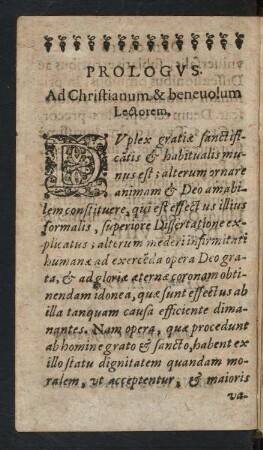 PROLOGVS.
Ad Christianum & beneuolum
Lectorem.
DVplex gratiæ sanctifi-
cātis & habitualis mu-
nus est; alterum ornare
animam & Deo amabi-
lem constituere, qui est effectus illius
formalis, superiore Dissertatione ex-
plicatus; alterum mederi infirmitati
humanæ ad exercēda opera Deo gra-
ta, & ad gloriæ eternæ coronam obti-
nendam idonea, quæ sunt effectus ab
illa tanquam causa efficiente dima-
nantes. Nam opera, quæ procedunt
ab homine grato & sancto, habent ex
illo statu dignitatem quandam mo-
ralem, vt acceptentur, & maioris
va-